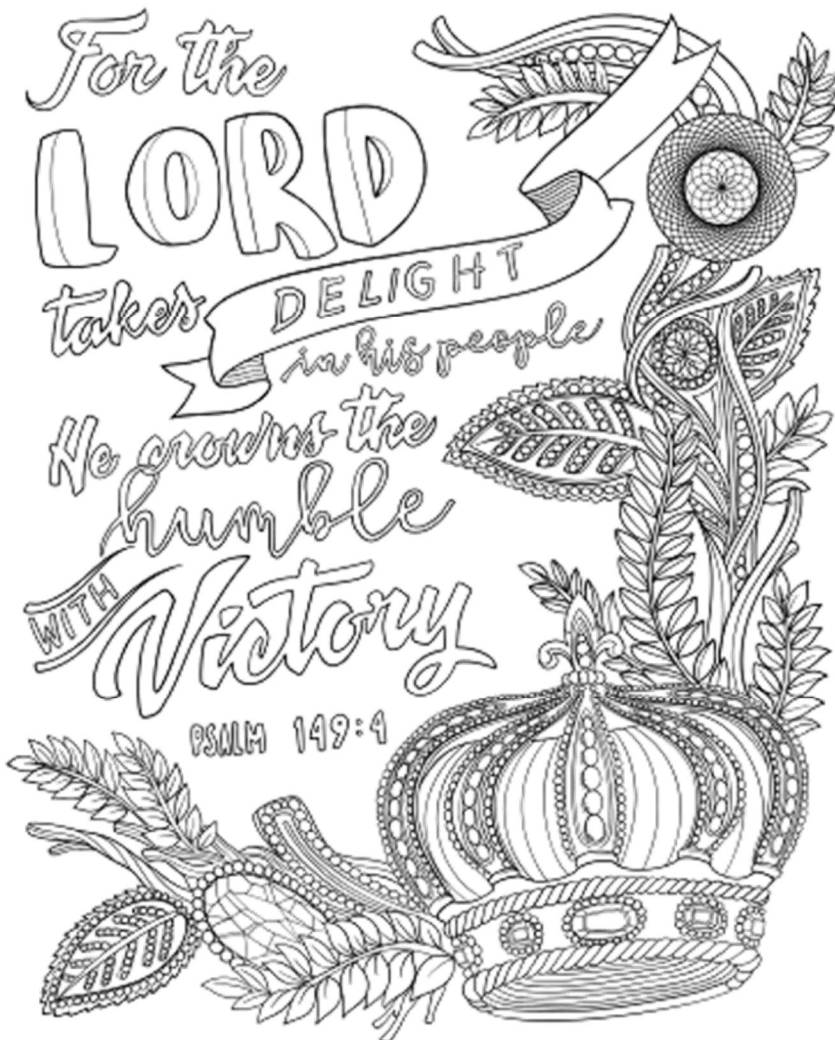 For the
LORD
takes DELIGHT
in his people
He crowns the
humble
WITH Victory
PSALM 149:4